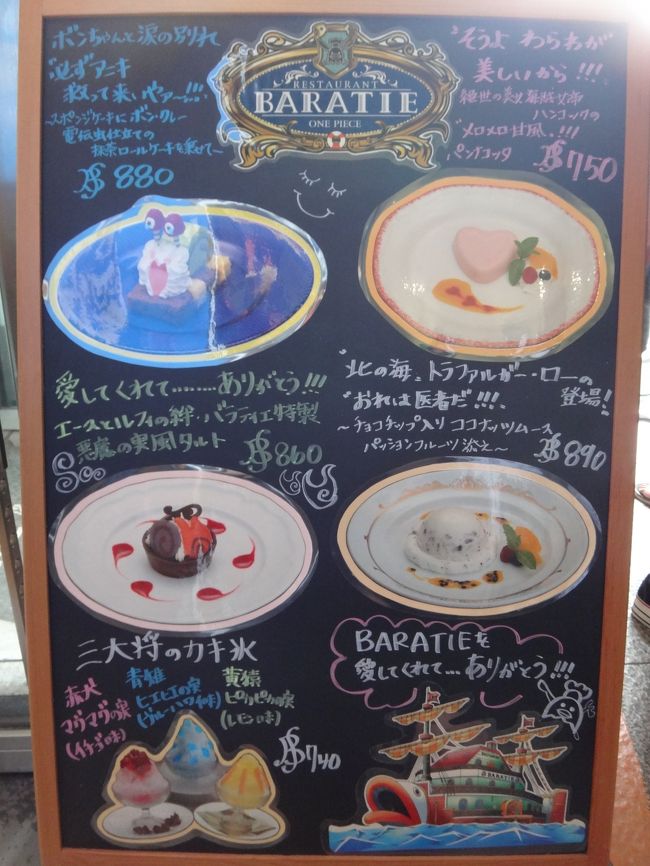 ボンちゃんと涙の別れ
"必ずアニキ
救って来いやァ〜!!!
〜スポンジケーキにボン・クレー
電伝虫仕立ての
抹茶ロールケーキを乗せて〜
880
RESTAURANT
BARATIE
ONE PIECE
"そうよ わらわが
美しいから!!!
絶世の美女 海賊女帝
ハンコックの
"メロメロ甘風"!!!
パンナコッタ
750
愛してくれて………ありがとう!!!
エースとルフィの絆・バラティエ特製
悪魔の実風タルト
860
"北の海、トラファルガー・ローの
"おれは医者だ"!!!
登場!
〜チョコチップ入り ココナッツムース
パッションフルーツ添え〜
890
三大将のカキ氷
赤犬
マグマグの実
(イチゴ味)
青雉
ヒエヒエの実
(ブルーハワイ味)
黄猿
ピカピカの実
(レモン味)
740
BARATIEを
愛してくれて…ありがとう!!!
BARATIE